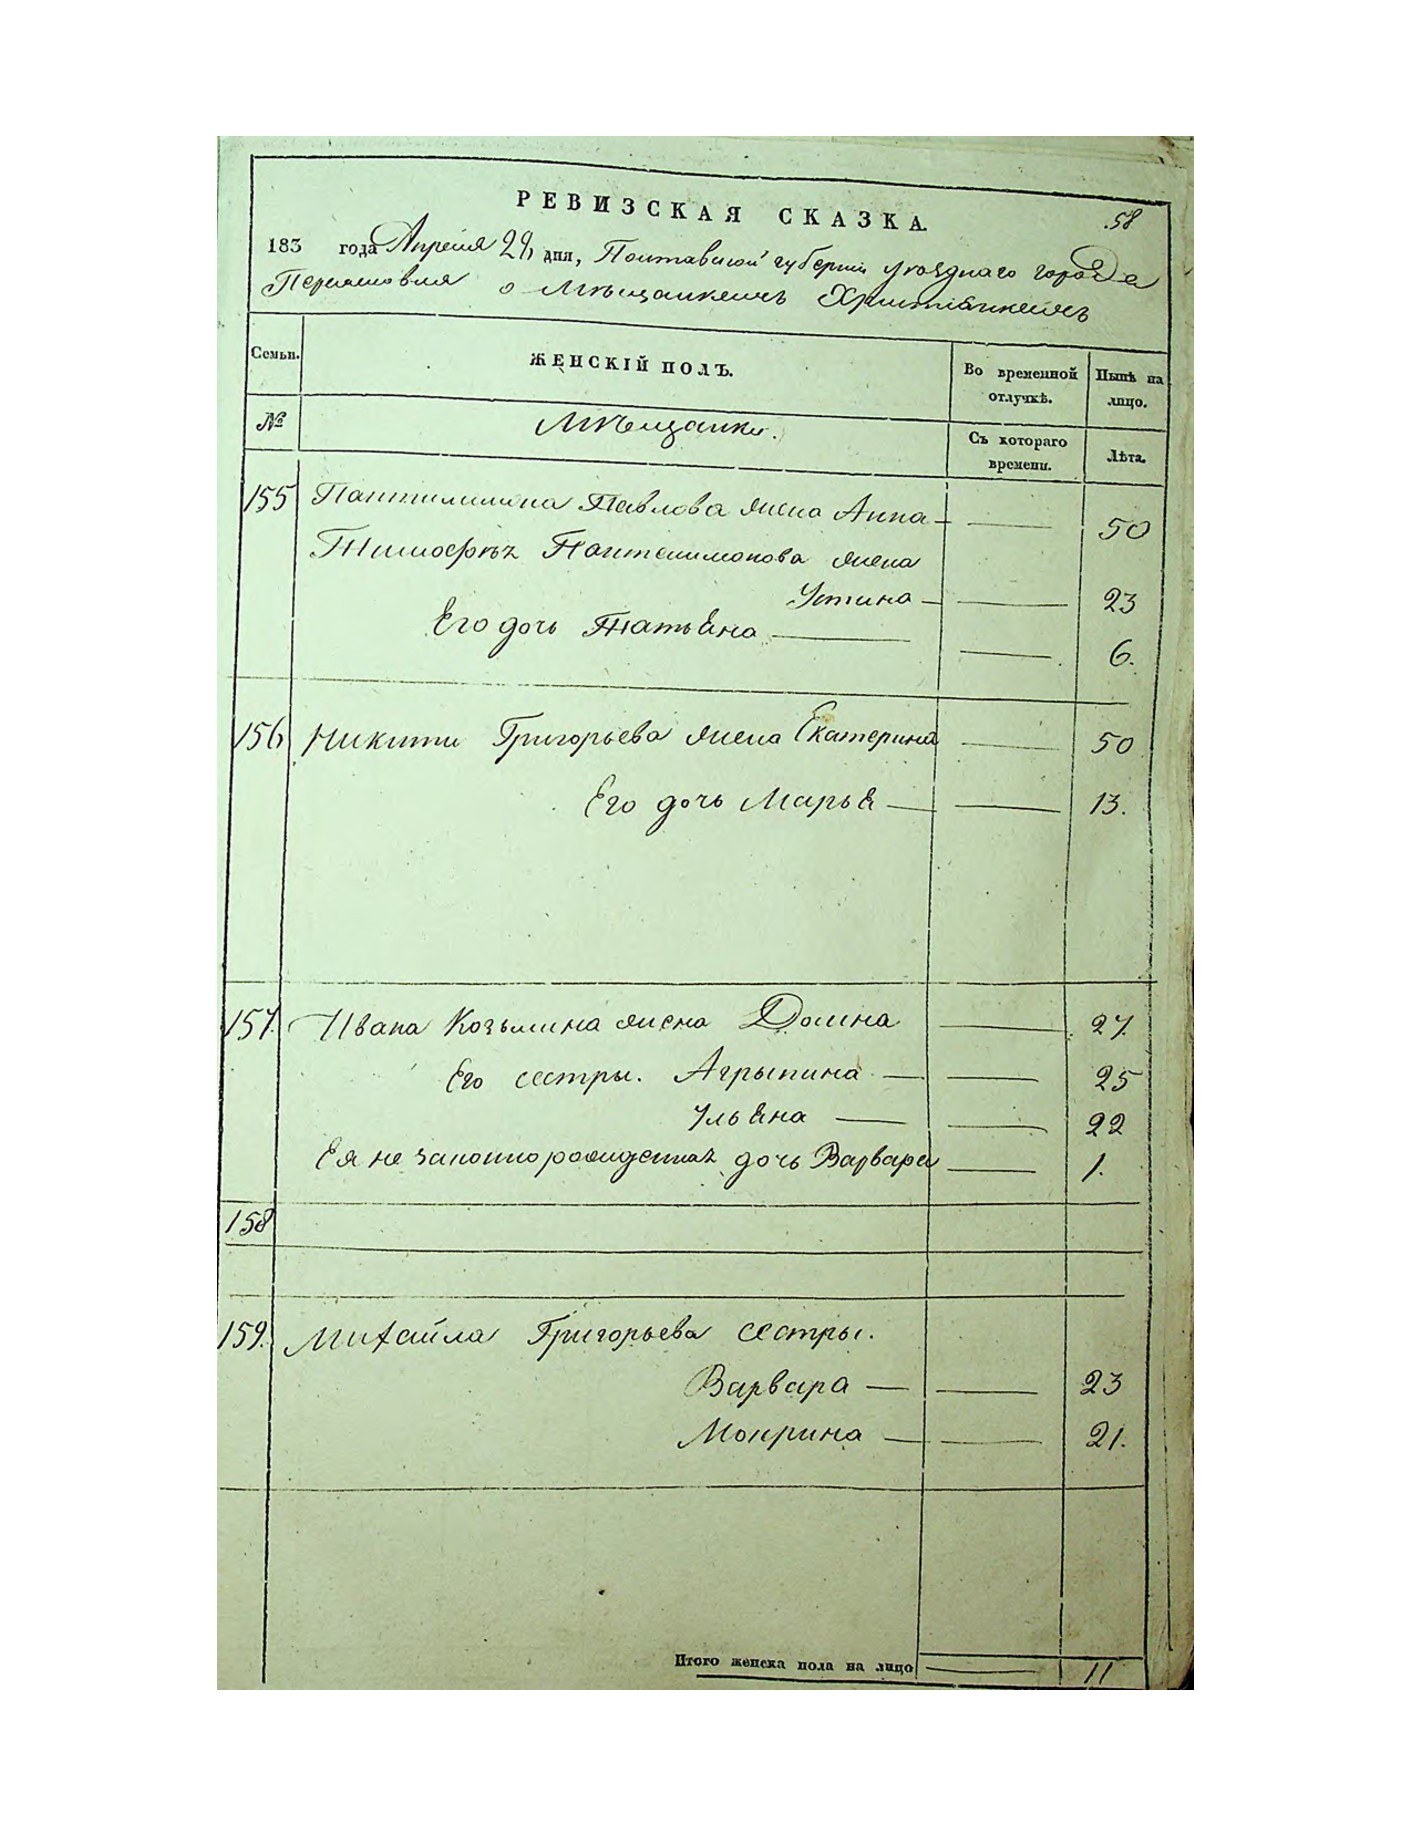 РЕВИЗСКАЯ СКАЗКА.
58
183 года Апреля 29 дня, Полтавской губернии уѣзднаго города
Переяславля о Мѣщанкахъ Христіянкахъ
Семьи.
ЖЕНСКІЙ ПОЛЪ.
Во временной отлучкѣ.
Нынѣ на лицо.
№
Мѣщанки.
Съ котораго времени.
Лѣта.
155 Пантилимона Павлова жена Анна — — 50
Тимофѣя Пантелимонова жена
Устина — — 23
Его дочь Татьяна — — 6.
156 Никиты Григорьева жена Екатерина — 50
Его дочь Марья — — 13.
157. Ивана Козьмина жена Домна — 27.
Его сестры. Агрыпина — — 25
Ульяна — — 22
Ея не законнорожденная дочь Варвара — 1.
158
159. Михайла Григорьева сестры.
Варвара — — 23
Мокрина — — 21.
Итого женска пола на лицо — 11